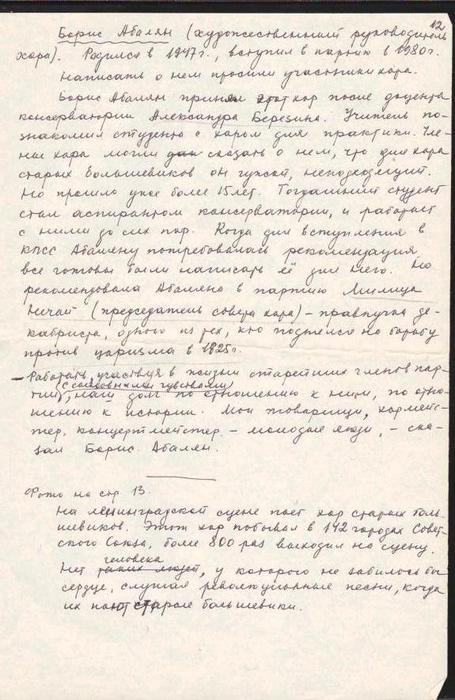 12
Борис Абалян (художественный руководитель
хора). Родился в 1947 г., вступил в партию в 1980 г.
Написать о нем просили участники хора.
Борис Абалян принял этот хор после доцента
консерватории Александра Березина. Учитель по-
знакомил студента с хором для практики. Чле-
ны хора могли сказать о нем, что для хора
старых большевиков он чужой, неподходящий.
Но прошло уже более 15 лет. Тогдашний студент
стал аспирантом консерватории, и работает
с ними до сих пор. Когда для вступления в
КПСС Абаляну потребовалась рекомендация,
все готовы были написать её для него. Но
рекомендовала Абаляна в партию Милица
Нечай (председатель совета хора) – правнучка де-
кабриста, одного из тех, кто поднялся на борьбу
против царизма в 1825 г.
– Работать, участвуя в жизни старейших членов пар-
(с сыновними чувствами)
тии, наш долг по отношению к ним, по отно-
шению к истории. Мои товарищи, хормейс-
тер, концертмейстер – молодые люди, – ска-
зал Борис Абалян.
Фото на стр. 13.
На ленинградской сцене поет хор старых боль-
шевиков. Этот хор побывал в 112 городах Совет-
ского Союза, более 800 раз выходил на сцену.
человека
Нет таких людей, у которого не забилось бы
сердце, слушая революционные песни, когда
их поют старые большевики.